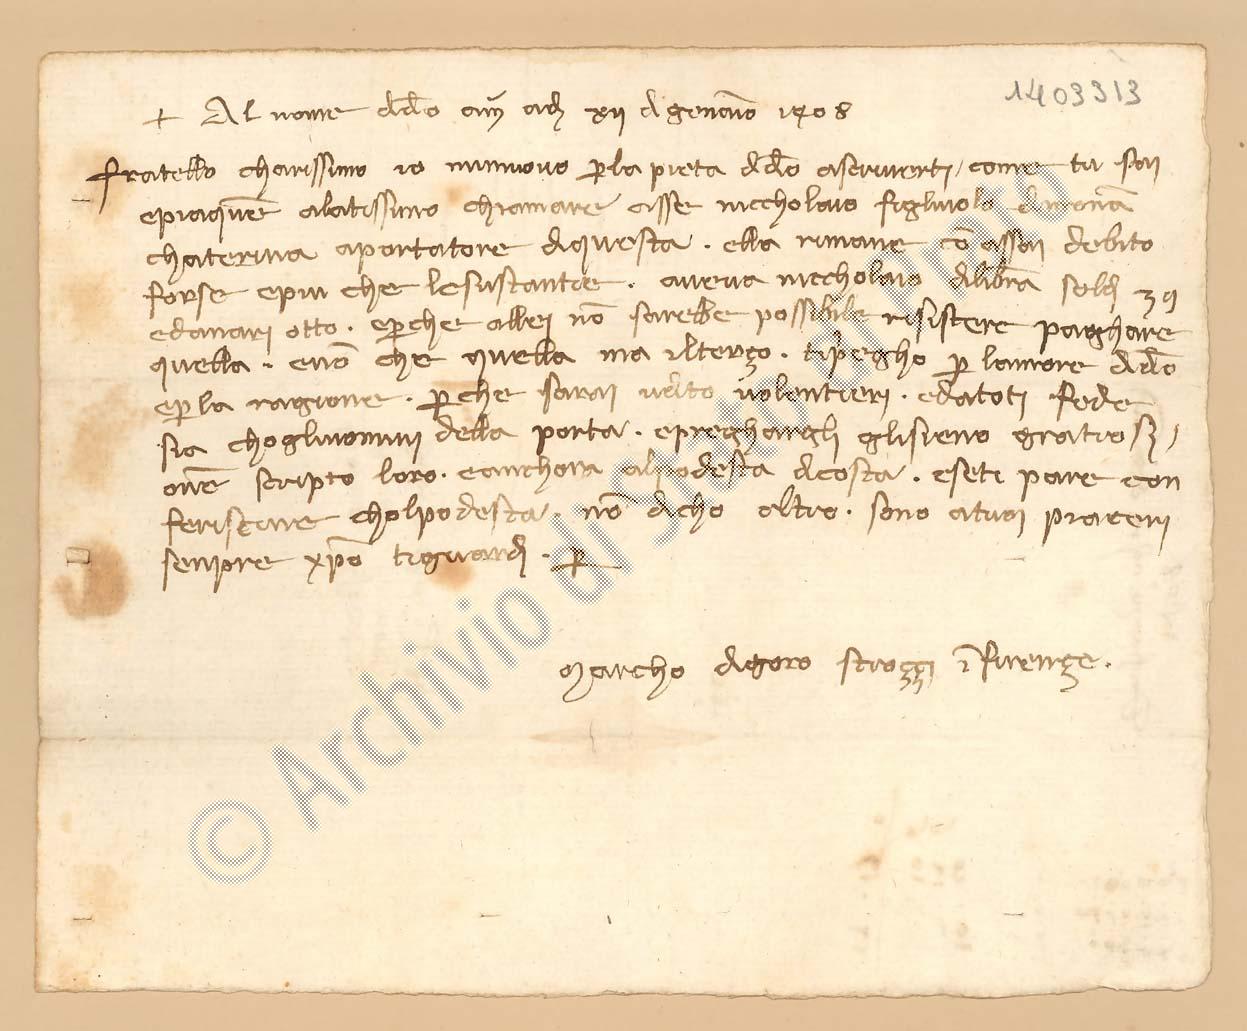 1403313
+ Al nome di dio am̄ adì xii di gennaio 1408
fratello charissimo io mi muovo ꝑ la pieta di dio a scriverti / come tu sai
e piaqque alaltissimo chiamare asse nicholaio figliuolo di monā
chaterina aportatore di questa . ella rimane cō assai debito
forse e piu che le sustantie . aveva nicholaio di libra soldi 39
e danari otto . e ꝑche allei nō sarebbe possibile risistere paghare
quella . enō che quella ma il terzo . ti priegho ꝑ lamore di dio
e ꝑ la ragione . ꝑche sarai udito volentieri . e datoti fede
sia chogliuomini della porta . e preghargli gli sieno gratiosi /
scripto loro . e anchora al podesta di costa . e seti pare con
feriscare chol podesta . nō dicho altro . sono a tuoi piaceri
senpre xp̄o ti guardi . ꝑ
Marcho di goro strozzi ī firenze .
© Archivio di Stato di Prato